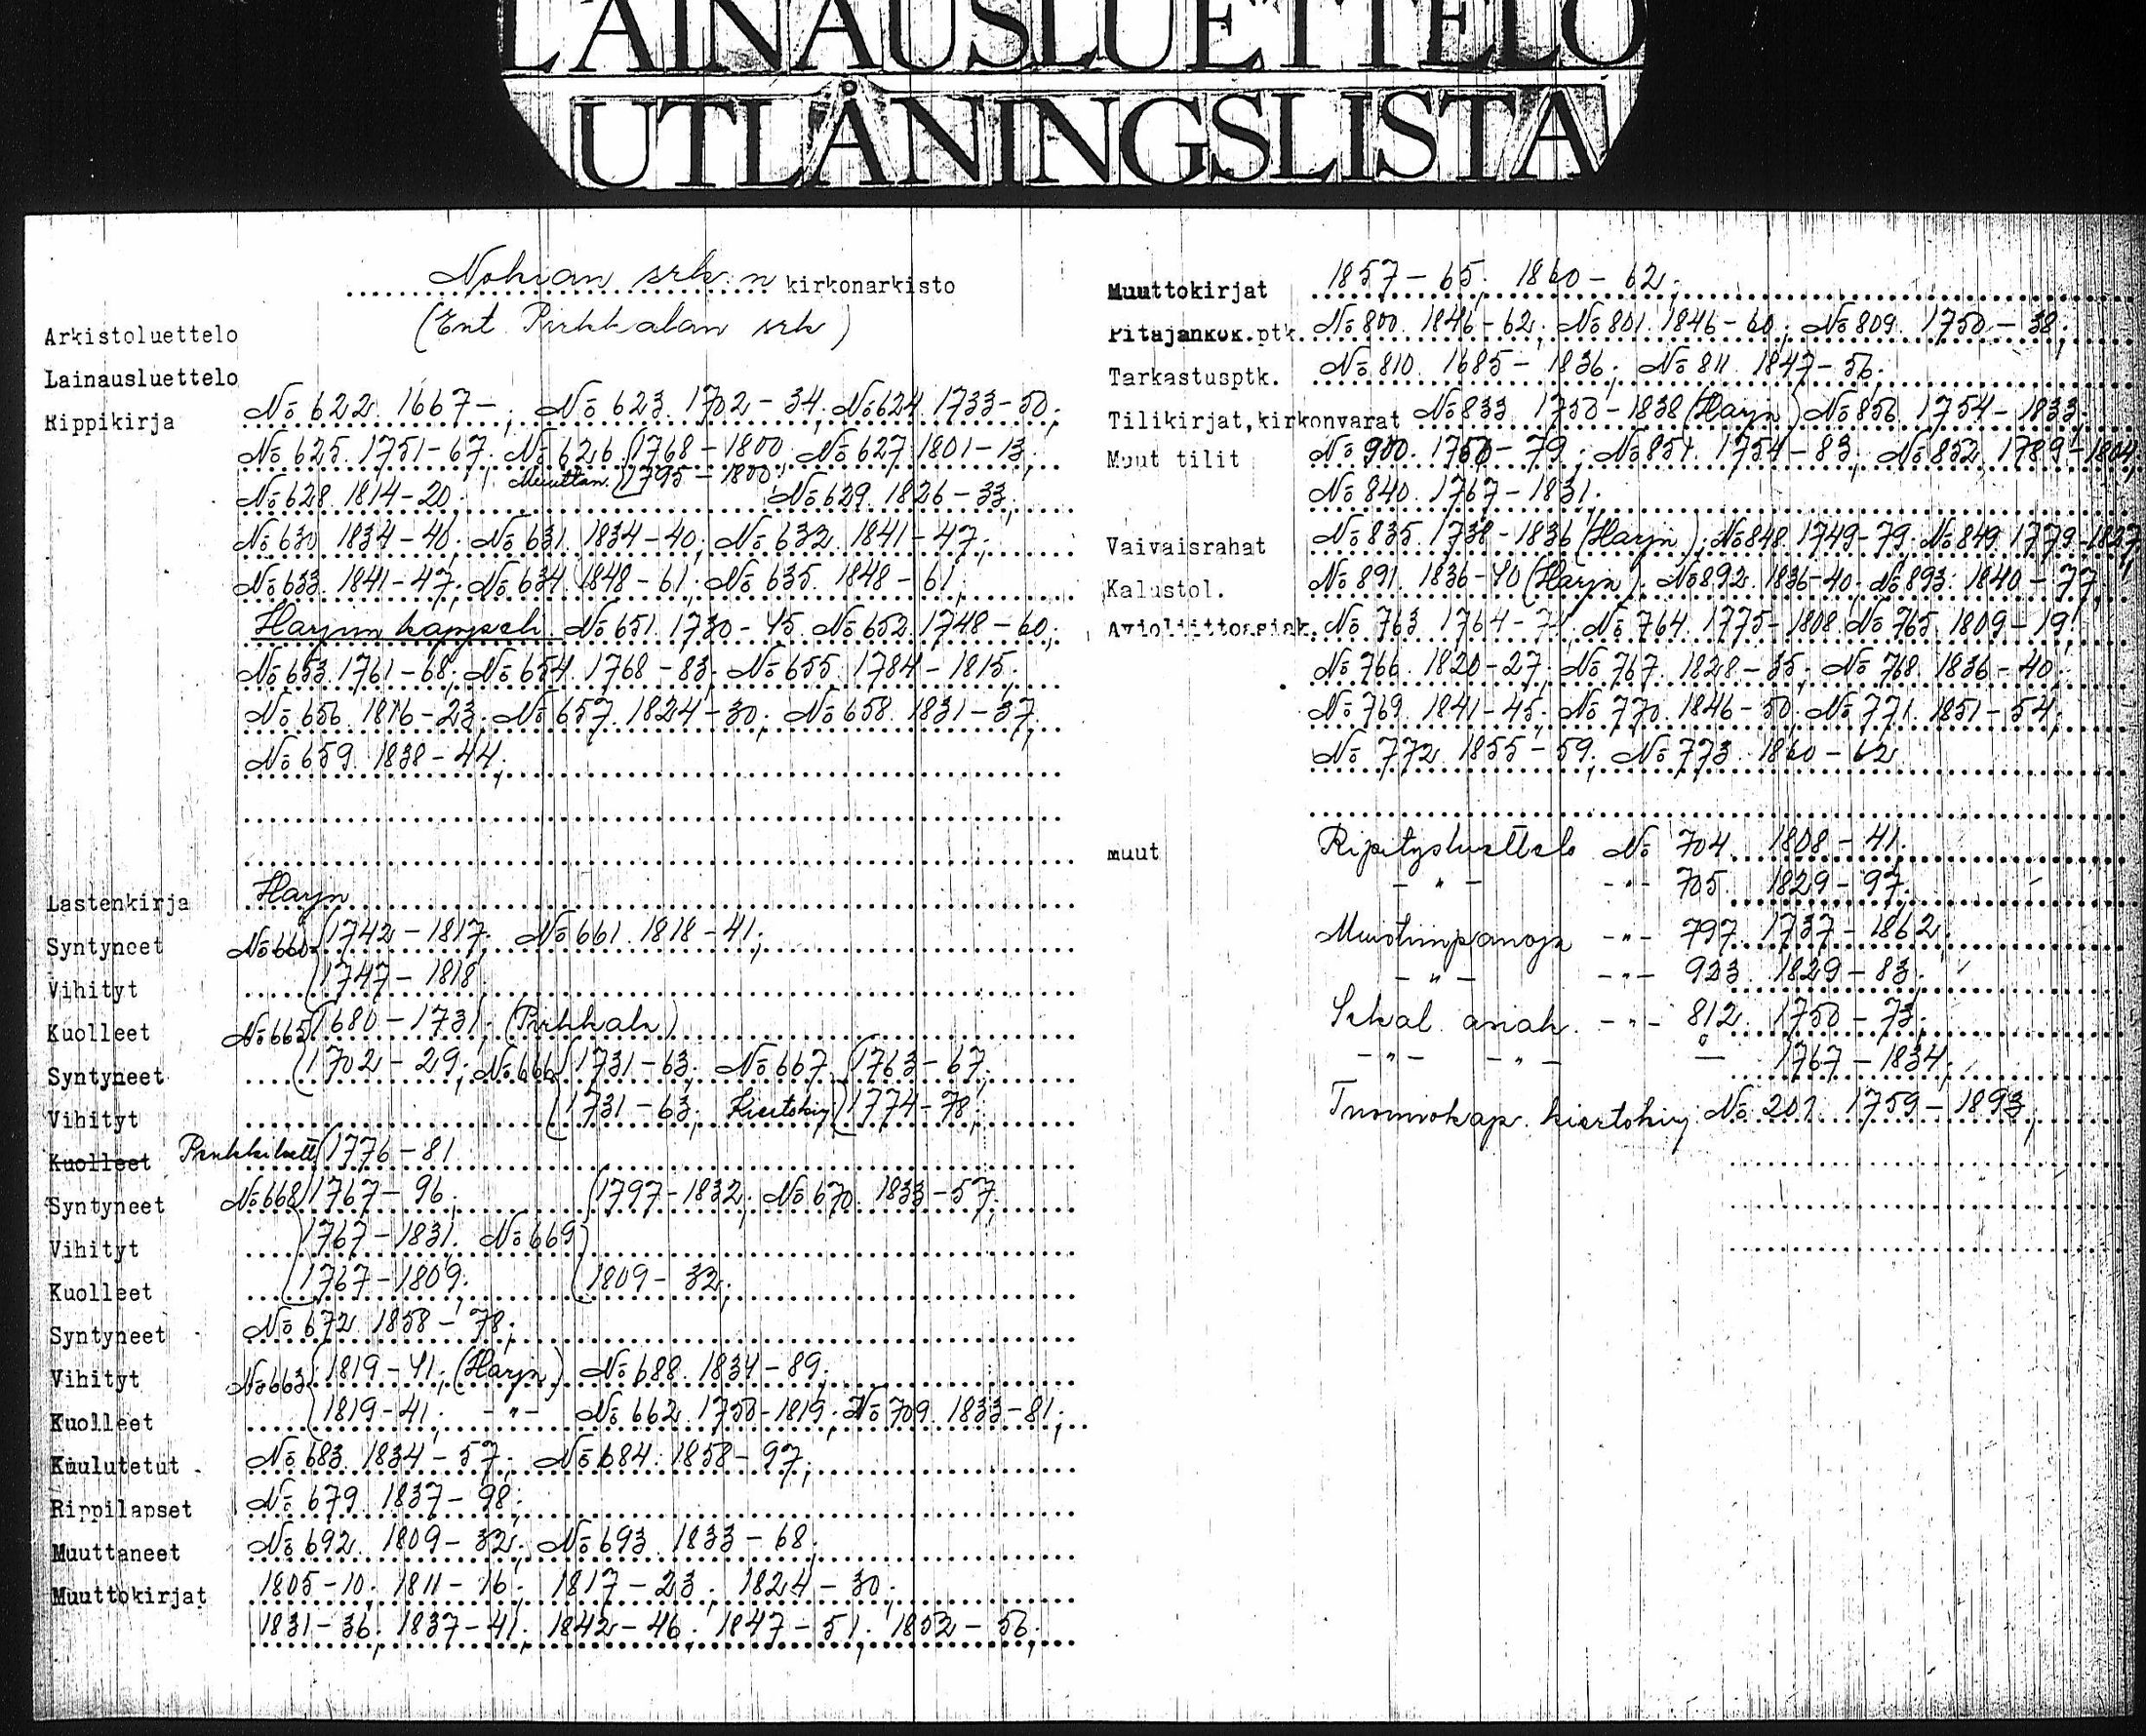 LAINAUSLUETTELO
UTLÅNINGSLISTA
Nokian srk:n kirkonarkisto
Arkistoluettelo (Ent. Pirkkalan srk)
Lainausluettelo
Rippikirja No 622. 1667-; No 623. 1702-34; No 624. 1733-50;
No 625. 1751-67. No 626. (1768-1800. No 627. 1801-13;
Muuttan. (1795-1800;
No 628. 1814-20; No 629. 1826-33;
No 630. 1834-40; No 631. 1834-40; No 632. 1841-47;
No 633. 1841-47; No 634. 1848-61; No 635. 1848-61;
Harjun kappseli No 651. 1730-45. No 652. 1748-60;
No 653. 1761-68; No 654. 1768-83; No 655. 1784-1815;
No 656. 1816-23; No 657. 1824-30; No 658. 1831-37;
No 659. 1838-44;
Lastenkirja Harju
Syntyneet No 660 (1742-1817; No 661. 1818-41;
Vihityt (1747-1818
Kuolleet No 665 (1680-1731; (Pirkkala)
Syntyneet (1702-29; No 666 (1731-63; No 667. (1763-67;
Vihityt (1731-63; Kiertokirj. (1774-78;
Kuolleet (1776-81
Syntyneet No 668 (1767-96; (1797-1832; No 670. 1833-57;
Vihityt (1767-1831. No 669
Kuolleet (1767-1809; (1809-32;
Syntyneet No 672. 1858-78;
Vihityt No 663 (1819-41; (Harju) No 688. 1834-89;
Kuolleet (1819-41; -"- No 662. 1750-1819; No 709. 1833-81;
Kuulutetut No 683. 1834-57; No 684. 1858-97;
Rippilapset No 679. 1837-98;
Muuttaneet No 692. 1809-32; No 693. 1833-68;
Muuttokirjat 1805-10; 1811-16; 1817-23; 1824-30;
1831-36; 1837-41; 1842-46; 1847-51; 1852-56;
Muuttokirjat 1857-65; 1860-62;
Pitäjänkok.ptk. No 800. 1846-62; No 801. 1846-60; No 809. 1750-38;
Tarkastusptk. No 810. 1685-1836; No 811. 1847-56;
Tilikirjat, kirkonvarat No 833. 1750-1838 (Harju) No 856. 1754-1833;
Muut tilit No 900. 1750-79; No 851. 1754-83; No 852. 1789-1804;
No 840. 1767-1831;
Vaivaisrahat No 835. 1738-1836 (Harju); No 848. 1749-79; No 849. 1779-1827;
Kalustol. No 891. 1836-40 (Harju). No 892. 1836-40; No 893. 1840-77;
Avioliittoasiak. No 763. 1764-74; No 764. 1775-1808. No 765. 1809-19;
No 766. 1820-27; No 767. 1828-35; No 768. 1836-40;
No 769. 1841-45; No 770. 1846-50; No 771. 1851-54;
No 772. 1855-59; No 773. 1860-62
muut Ripitysluettelo No 704. 1808-41.
-"- -"- 705. 1829-97.
Muistiinpanoja -"- 797. 1737-1862;
-"- -"- 923. 1829-83;
Sekal. asiak. -"- 812. 1750-73;
-"- -"- — 1767-1834;
Tuomiokap. kiertokirj. No 201. 1759-1893;